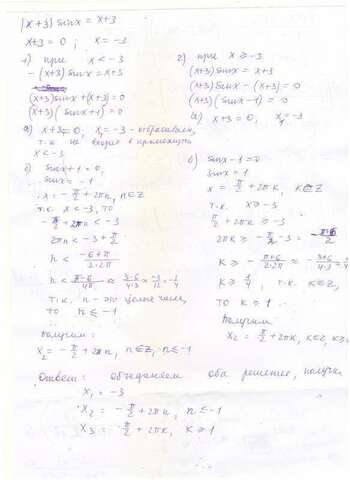 |x+3| sinx = x+3
x+3 = 0 ; x = -3
1) при x < -3
- (x+3) sinx = x+3
(x+3) sinx + (x+3) = 0
(x+3)( sinx + 1) = 0
а) x+3=0, x₁ = -3 - отбрасываем,
т.к. не входит в промежуток
x < -3
б) sinx + 1 = 0,
sinx = -1
x = - π/2 + 2πn, n∈Z
т.к. x < -3, то
- π/2 + 2πn < -3
2πn < -3 + π/2
n < (-6+π)/(2·2π)
n < (π-6)/4π ≈ (3-6)/(4·3) ≈ -3/12 = -1/4
т.к. n - это целое число,
то n ≤ -1
Получим:
x₂ = - π/2 + 2πn, n∈Z, n ≤ -1
2) при x ≥ -3
(x+3) sinx = x+3
(x+3) sinx - (x+3) = 0
(x+3)( sinx - 1) = 0
а) x+3=0, x₁ = -3
sinx - 1 = 0
sinx = 1
x = π/2 + 2πk, k∈Z
т.к. x ≥ -3
π/2 + 2πk ≥ -3
то k ≥ 1.
Получим
Ответ: объединяем оба решение, получим
x₁ = -3
x₂ = - π/2 + 2πn, n ≤ -1
x₃ = π/2 + 2πk, k ≥ 1